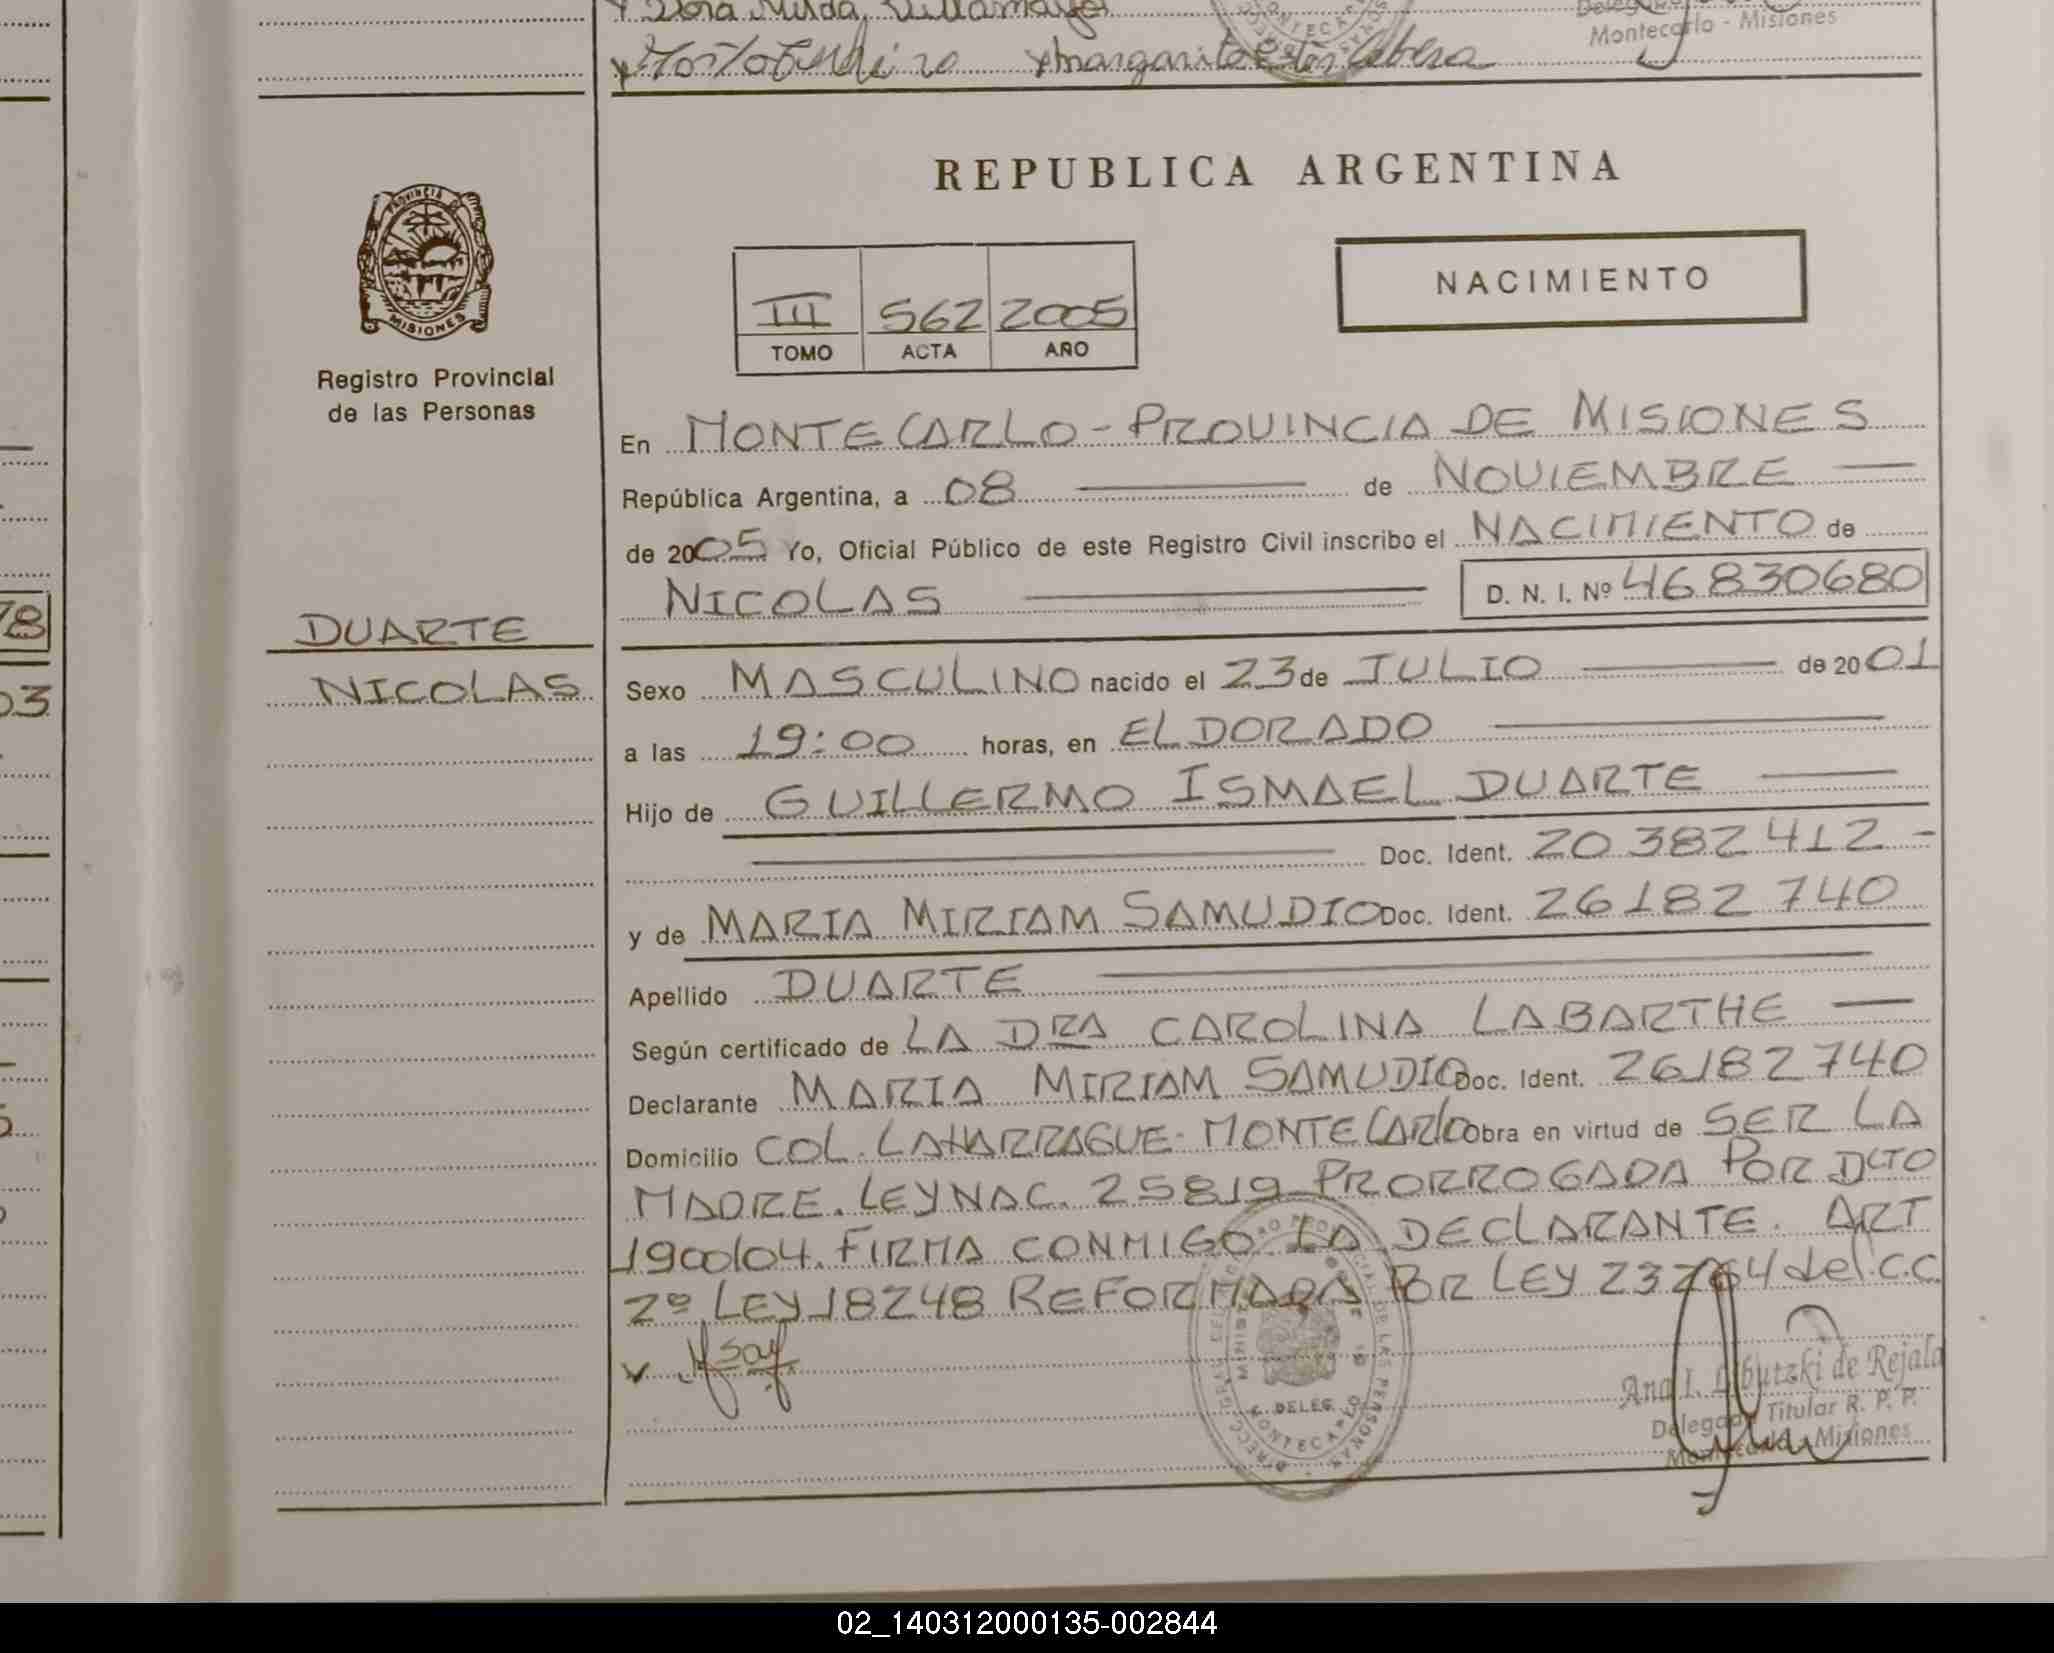 Montecarlo - Misiones
REPUBLICA ARGENTINA
PROVINCIA DE MISIONES
Registro Provincial
de las Personas
NACIMIENTO
III 562 2005
TOMO ACTA AÑO
En MONTECARLO - PROVINCIA DE MISIONES
República Argentina, a 08 de NOVIEMBRE
de 2005 Yo, Oficial Público de este Registro Civil inscribo el NACIMIENTO de
NICOLAS D. N. I. Nº 46830680
DUARTE
NICOLAS
Sexo MASCULINO nacido el 23 de JULIO de 2001
a las 19:00 horas, en ELDORADO
Hijo de GUILLERMO ISMAEL DUARTE
Doc. Ident. 20382412 -
y de MARIA MIRIAM SAMUDIO Doc. Ident. 26182740
Apellido DUARTE
Según certificado de LA DRA CAROLINA LABARTHE
Declarante MARIA MIRIAM SAMUDIO Doc. Ident. 26182740
Domicilio COL. LAHARRAGUE - MONTECARLO Obra en virtud de SER LA
MADRE. LEY NAC. 25819 PRORROGADA POR DCTO
1900/04. FIRMA CONMIGO LA DECLARANTE. ART
2º LEY 18248 REFORMADA POR LEY 23264 del C.C.
Ana I. Libutzki de Rejala
Delegada Titular R. P. P.
Montecarlo - Misiones
02_140312000135-002844